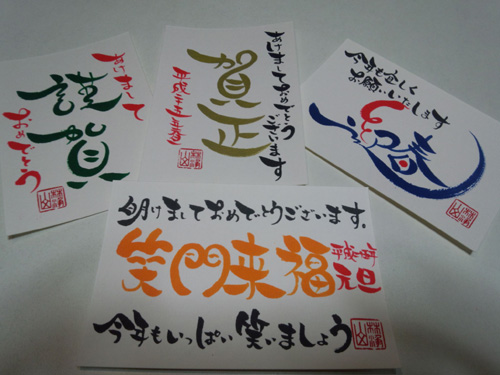 あけまして
謹賀
おめでとう
あけましておめでとう
ございます
賀正
今年も宜しく
お願いいたします
春
明けましておめでとうございます。
笑門来福
元旦
今年もいっぱい笑いましょう